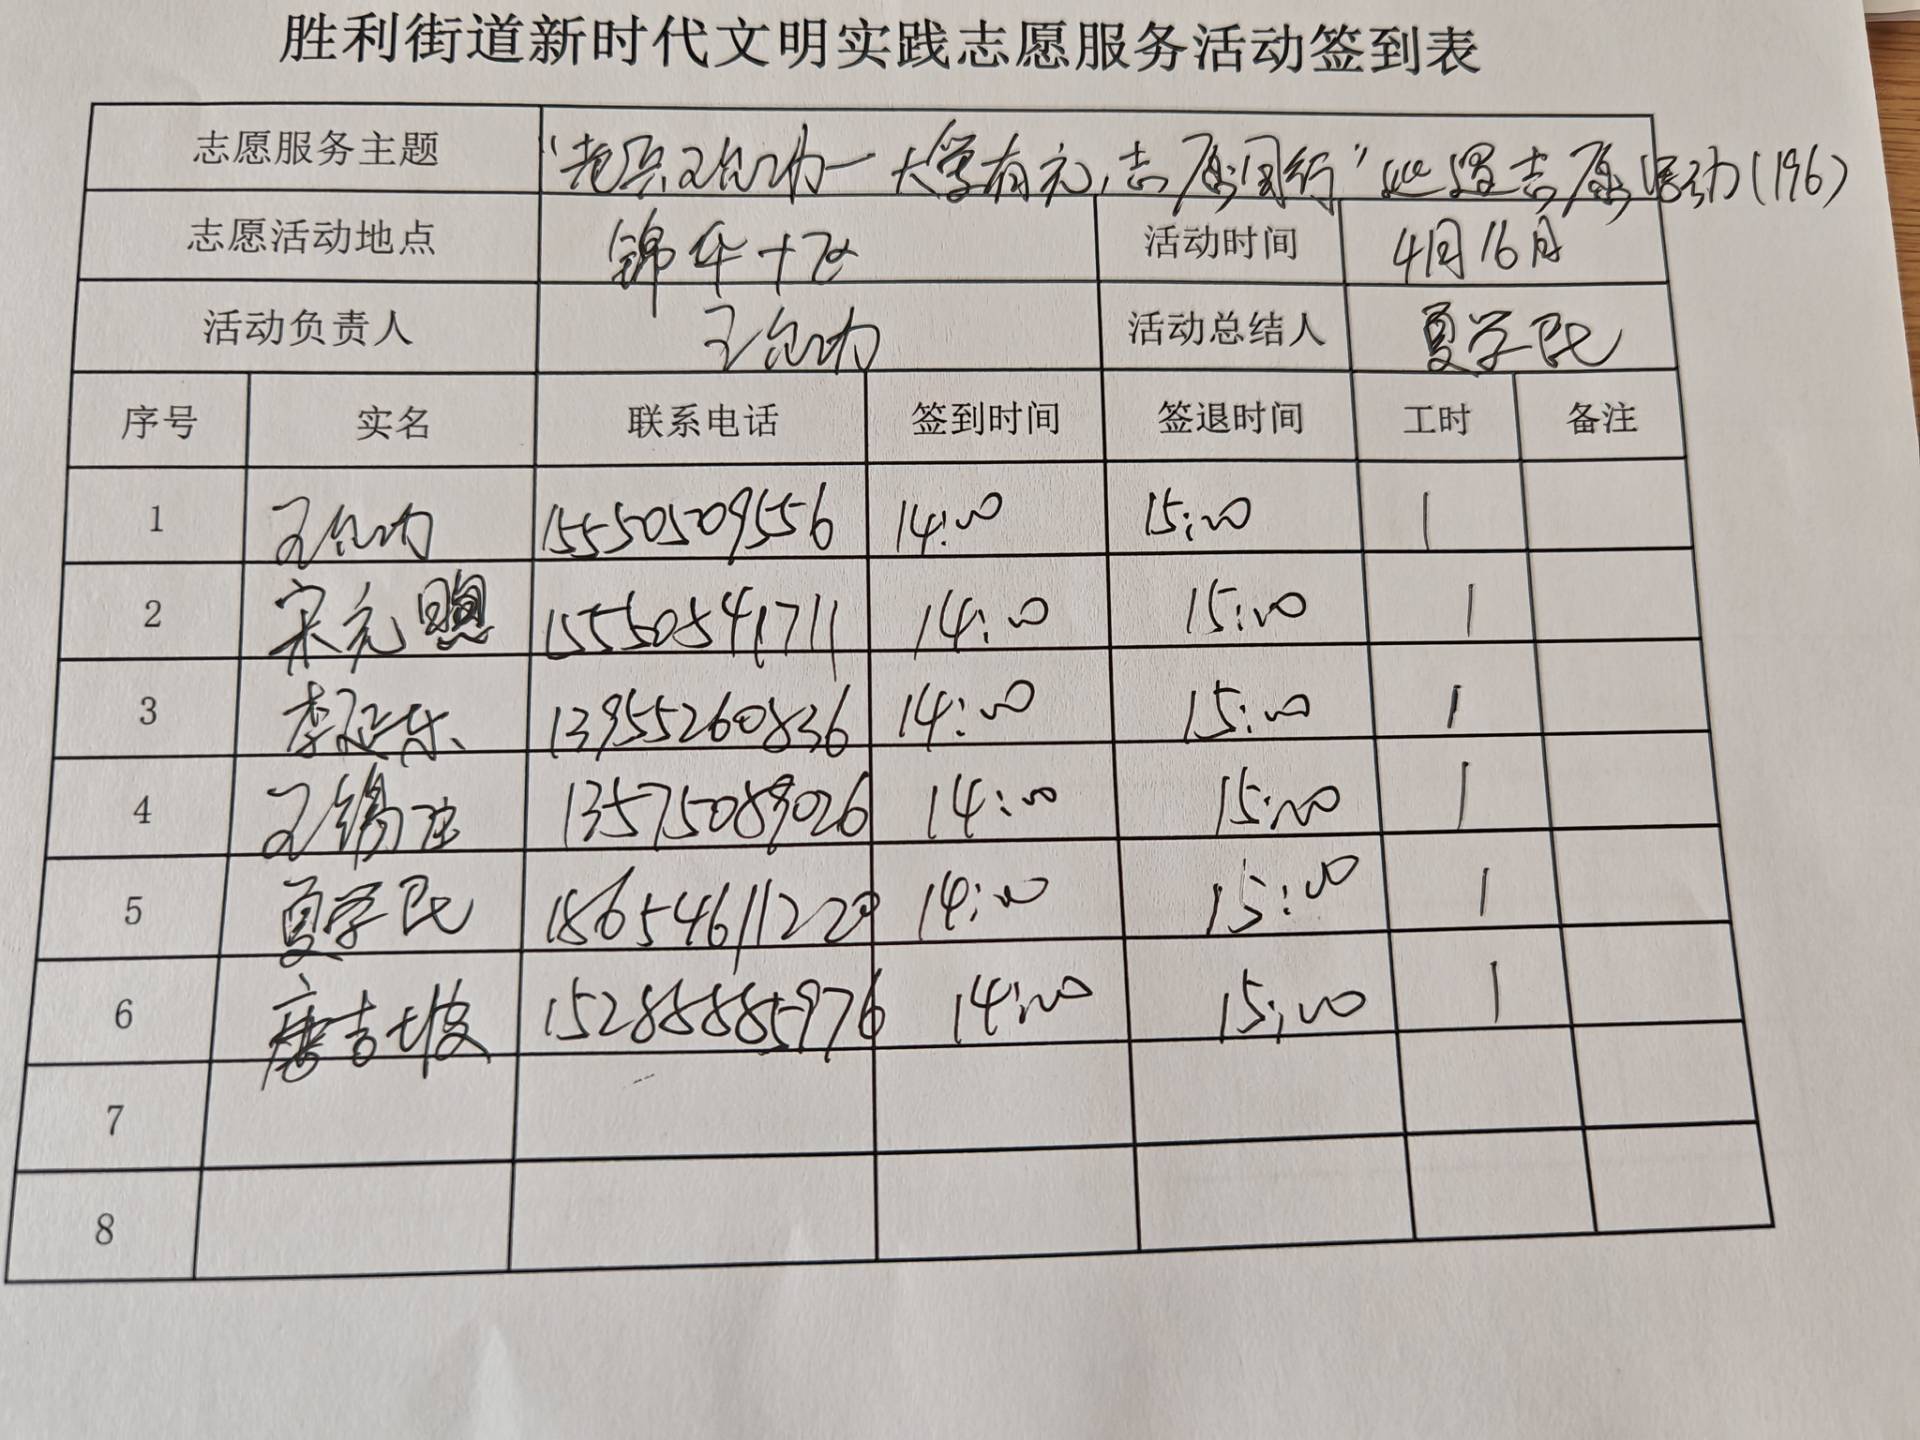 胜利街道新时代文明实践志愿服务活动签到表
志愿服务主题 “老兵 一大学有元,志愿同行” 志愿活动(196)
志愿活动地点 锦华十区 活动时间 4月16日
活动负责人 活动总结人 夏学民
序号 实名 联系电话 签到时间 签退时间 工时 备注
1 15550509556 14:00 15:00 1
2 宋元 15550541711 14:00 15:00 1
3 李延东 13955260836 14:00 15:00 1
4 王锡 13575089026 14:00 15:00 1
5 夏学民 14:00 15:00 1
6 唐吉坡 15288885976 14:00 15:00 1
7
8